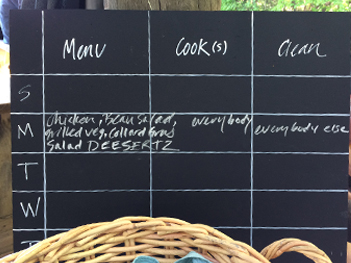 Menu Cook(s) Clean
S
M Chicken, Bean Salad, everybody everybody else
grilled veg, Collard Greens
Salad DEESERTZ
T
W